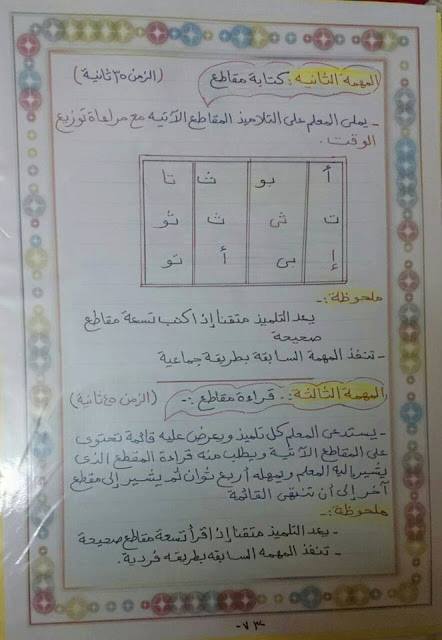 المهمة الثانية : كتابة مقاطع (الزمن ٣٥ ثانية)
- يملى المعلم على التلاميذ المقاطع الآتية مع مراعاة توزيع
الوقت .
أُ بو ث تا
ت ثى ث ثو
إ بى أ تو
ملحوظة :-
يعد التلميذ متقنا إذا كتب تسعة مقاطع
صحيحة
- تنفذ المهمة السابقة بطريقة جماعية
المهمة الثالثة : قراءة مقاطع :- (الزمن ٤٥ ثانية)
- يستدعى المعلم كل تلميذ ويعرض عليه قائمة تحتوى
على المقاطع الآتية ويطلب منه قراءة المقطع الذى
يشير إليه المعلم ويمهله أربع ثوان ثم يشير إلى مقطع
آخر إلى أن تنتهى القائمة
ملحوظة :-
- يعد التلميذ متقنا إذا قرأ تسعة مقاطع صحيحة
- تنفذ المهمة السابقة بطريقة فردية .